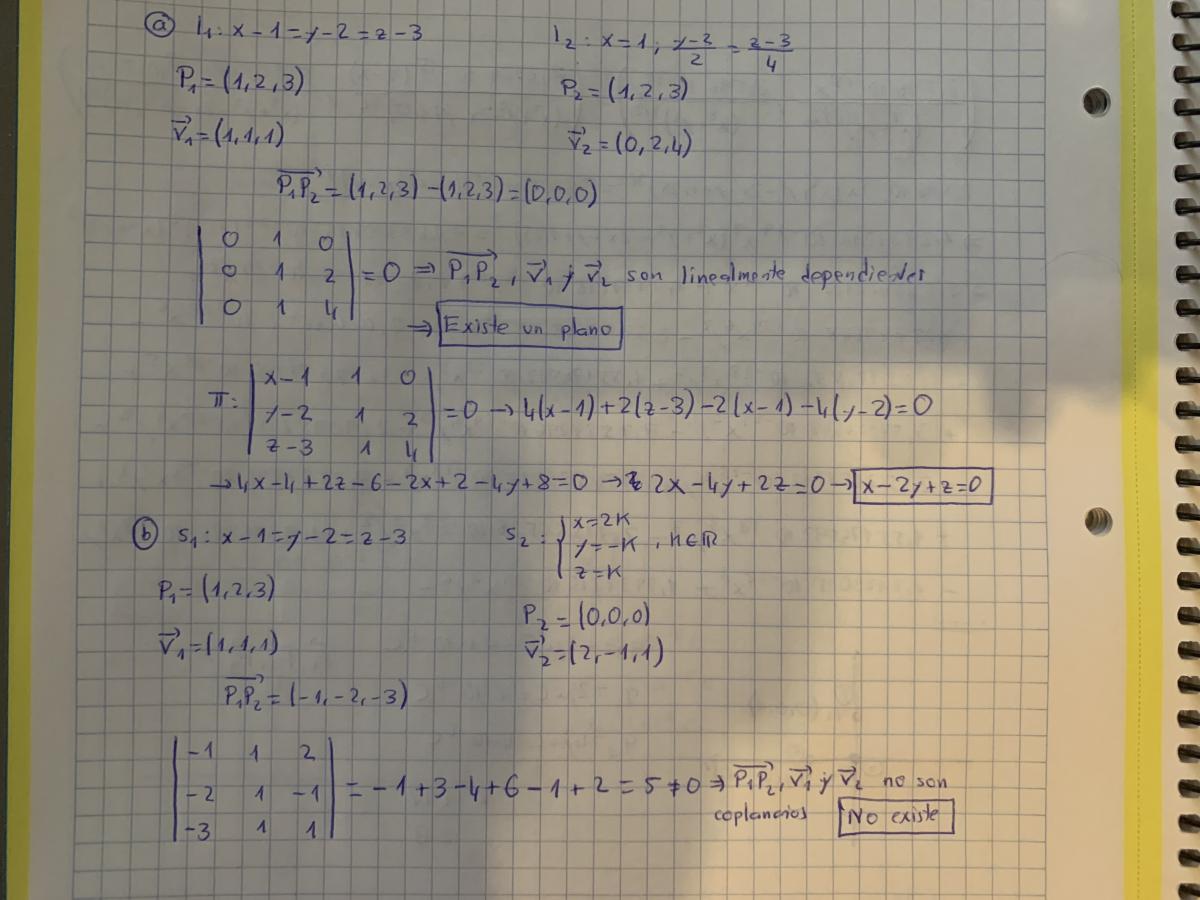 ⓐ l₁: x-1=y-2=z-3   l₂: x=1; (y-2)/2 = (z-3)/4
P₁=(1,2,3)   P₂=(1,2,3)
v⃗₁=(1,1,1)   v⃗₂=(0,2,4)
P₁P₂⃗=(1,2,3)-(1,2,3)=(0,0,0)
| 0 1 0 |
| 0 1 2 | =0 ⇒ P₁P₂⃗, v⃗₁ y v⃗₂ son linealmente dependientes
| 0 1 4 |
⇒ Existe un plano
| x-1 1 0 |
π: | y-2 1 2 | =0 → 4(x-1)+2(z-3)-2(x-1)-4(y-2)=0
| z-3 1 4 |
→ 4x-4+2z-6-2x+2-4y+8=0 → 2x-4y+2z=0 → x-2y+z=0
ⓑ s₁: x-1=y-2=z-3   s₂: { x=2K
y=-K , K∈ℝ
z=K
P₁=(1,2,3)
P₂=(0,0,0)
v⃗₁=(1,1,1)   v⃗₂=(2,-1,1)
P₁P₂⃗=(-1,-2,-3)
| -1 1 2 |
| -2 1 -1 | = -1+3-4+6-1+2=5≠0 ⇒ P₁P₂⃗, v⃗₁ y v⃗₂ no son
| -3 1 1 |
coplanarios   No existe